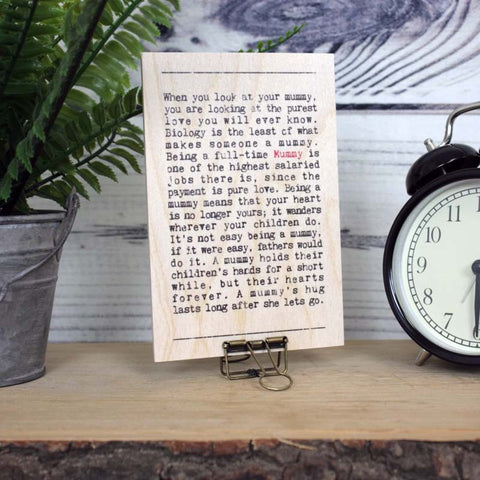 When you look at your mummy,
you are looking at the purest
love you will ever know.
Biology is the least of what
makes someone a mummy.
Being a full-time Mummy is
one of the highest salaried
jobs there is, since the
payment is pure love. Being a
mummy means that your heart
is no longer yours; it wanders
wherever your children do.
It's not easy being a mummy,
if it were easy, fathers would
do it. A mummy holds their
children's hands for a short
while, but their hearts
forever. A mummy's hug
lasts long after she lets go.
11
10
9
8
7
6